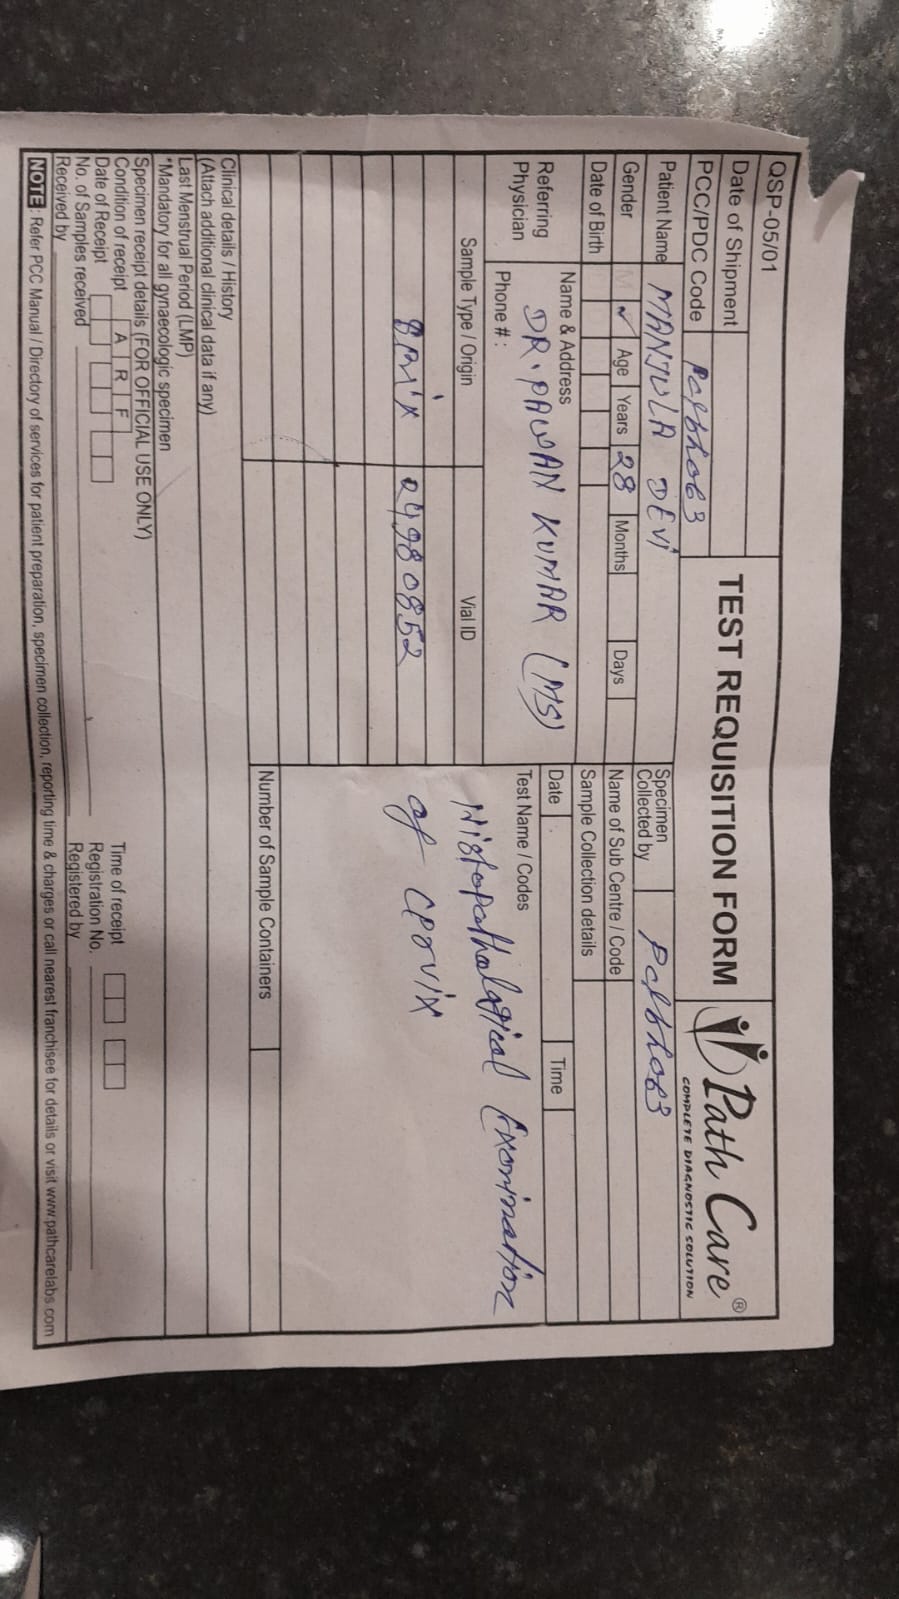 QSP-05/01
TEST REQUISITION FORM
Path Care®
COMPLETE DIAGNOSTIC SOLUTION
Date of Shipment
PCC/PDC Code
Patient Name MANJULA DEVI
Specimen Collected by
Gender M ✓ Age Years 28 Months Days
Name of Sub Centre / Code
Date of Birth
Sample Collection details
Date Time
Referring Physician
Name & Address
DR. PAWAN KUMAR (MS)
Phone #:
Test Name / Codes
Histopathological Examination
of
Sample Type / Origin Vial ID
02980852
Number of Sample Containers
Clinical details / History
(Attach additional clinical data if any)
Last Menstrual Period (LMP)
*Mandatory for all gynaecologic specimen
Specimen receipt details (FOR OFFICIAL USE ONLY)
Condition of receipt A R F
Time of receipt
Date of Receipt
Registration No.
No. of Samples received
Registered by
Received by
NOTE : Refer PCC Manual / Directory of services for patient preparation, specimen collection, reporting time & charges or call nearest franchisee for details or visit www.pathcarelabs.com